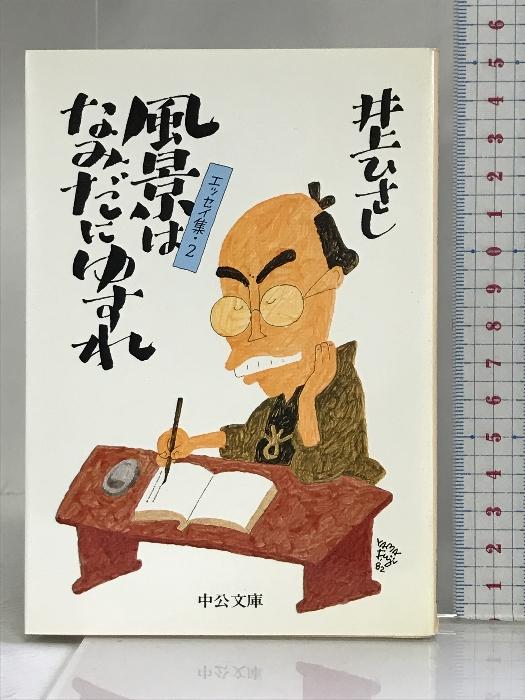 井上ひさし
風景は
なみだにゆすれ
エッセイ集・2
YAMA
Fuji
82
中公文庫
6
5
4
3
2
1
0
1
9
8
7
6
5
4
3
2
1